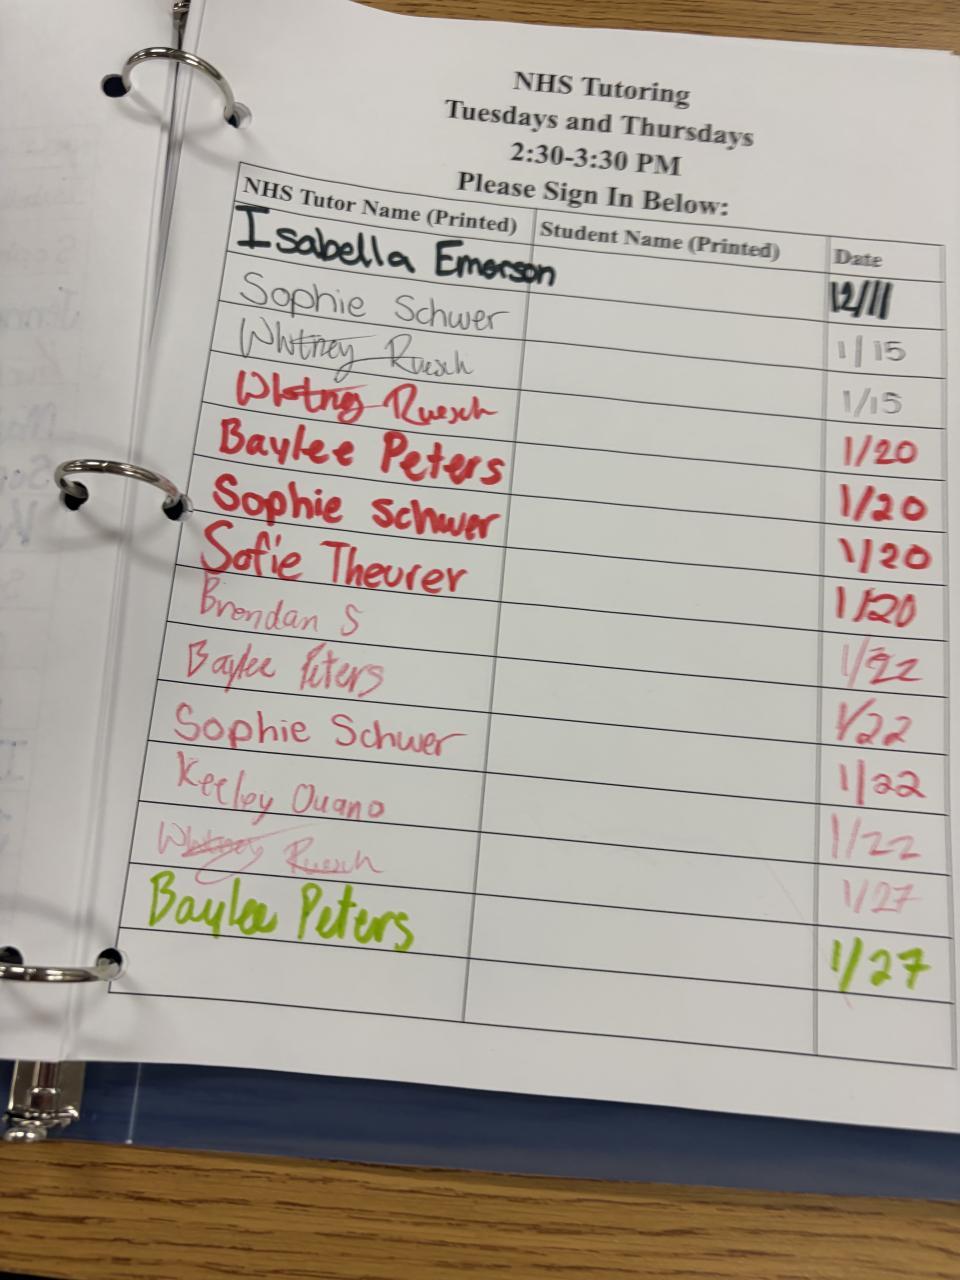 NHS Tutoring
Tuesdays and Thursdays
2:30-3:30 PM
Please Sign In Below:
NHS Tutor Name (Printed) Student Name (Printed) Date
Isabella Emerson 12/11
Sophie Schwer 1/15
Whitney Ruesch 1/15
Whitney Ruesch 1/20
Baylee Peters 1/20
Sophie Schwer 1/20
Sofie Theurer 1/20
Brendan S 1/22
Baylee Peters 1/22
Sophie Schwer 1/22
Keeley Ouano 1/22
Whitney Ruesch 1/27
Baylee Peters 1/27